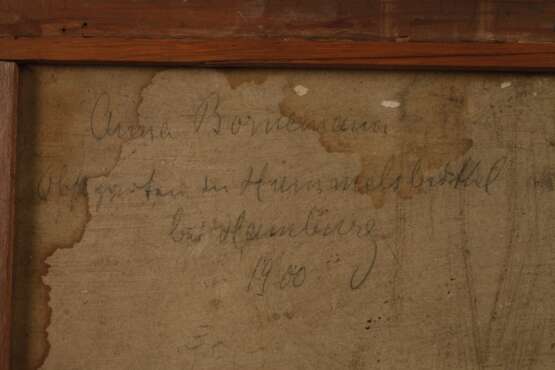 Anna Bornemann
Obstgarten in Hummelsbüttel
bei Hamburg
1900